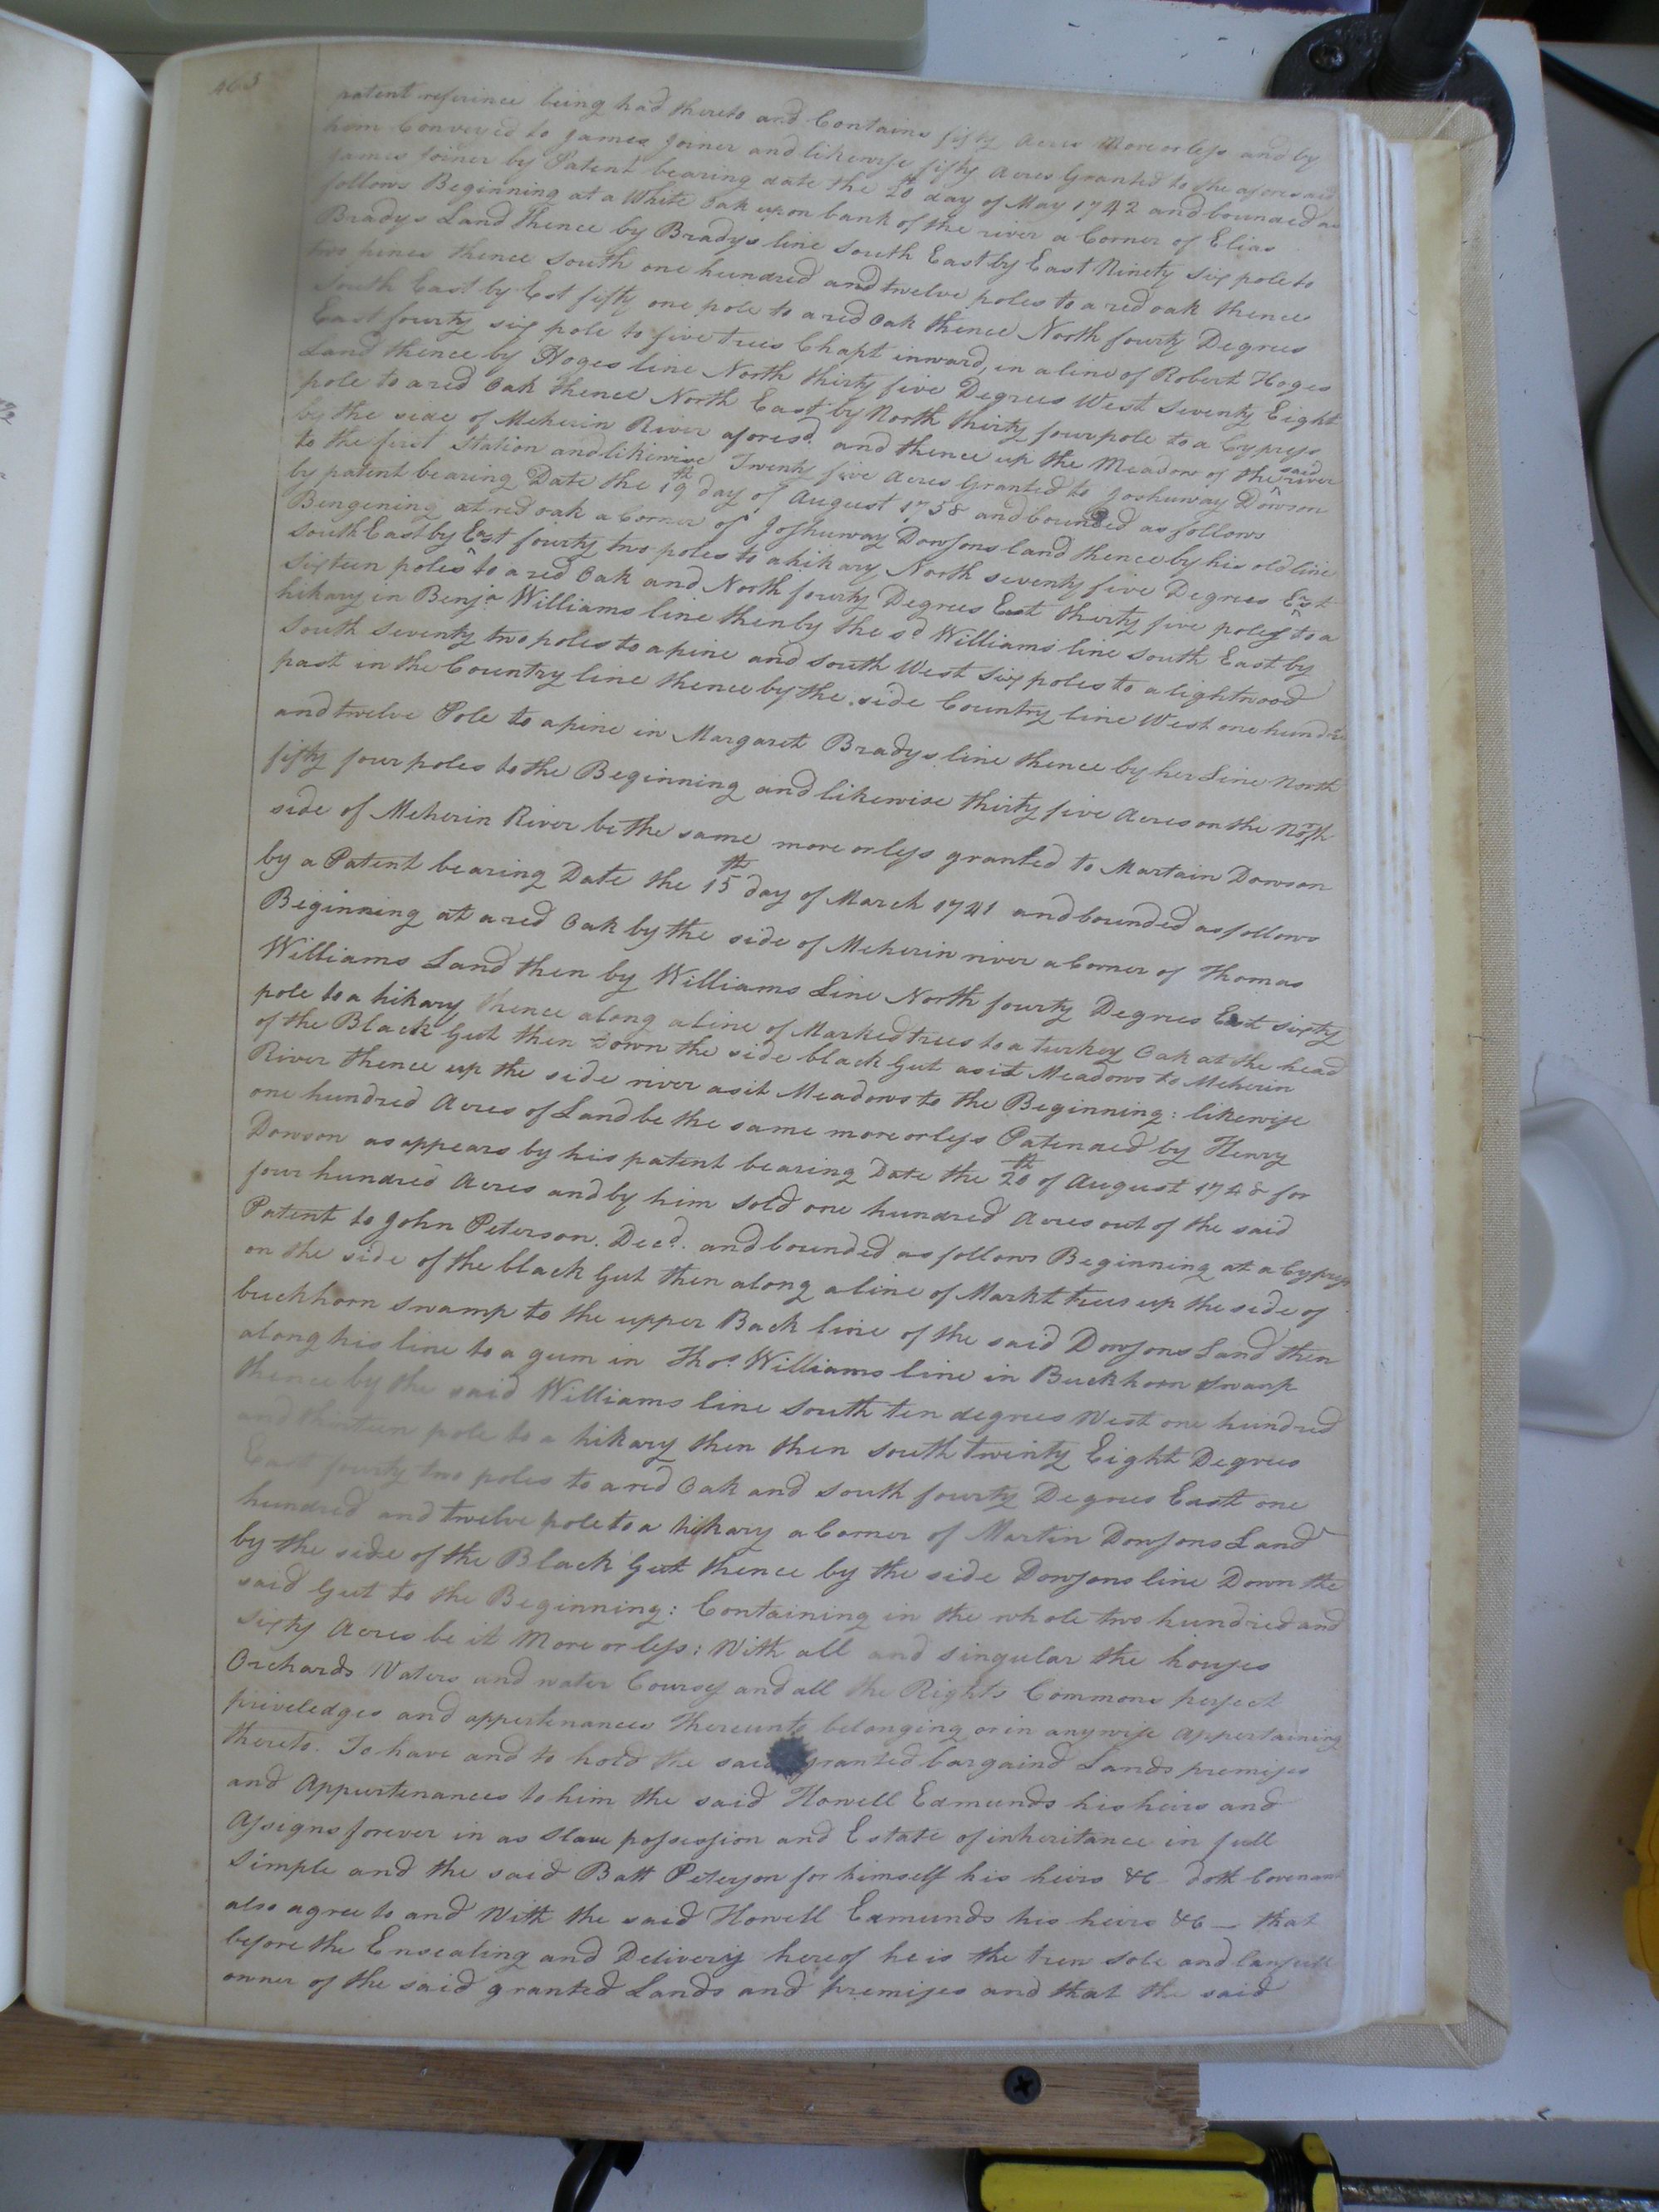 463
patent referince being had thereto and Contains fifty Acres More or less and by
him Conveyed to James Joiner and likewise fifty Acres Granted to the aforesaid
James Joiner by Patent bearing date the 20th day of May 1742 and bounded as
follows Beginning at a White Oak upon bank of the river a Corner of Elias
Bradys Land Thence by Bradys line South East by East Ninety six pole to
two pines thence South one hundred and twelve poles to a red oak thence
South East by Est fifty one pole to a red Oak thence North fourty Degrees
East fourty six pole to five trees Chapt inward, in a line of Robert Hoges
Land thence by Hoges line North thirty five Degrees West Seventy Eight
pole to a red Oak thence North East by North thirty four pole to a Cypress
by the side of Meherin River aforesd. and thence up the Meadow of the said river
to the first Station and likewise Twenty five Acres Granted to Joshuway Dowson
by patent bearing Date the 19th day of August 1758 and bounded as follows
Bengening at red oak a Corner of Joshuway Dowsons land thence by his old line
South East by East fourty two poles to a hikary North seventy five Degrees East
Sixteen poles to a red Oak and North fourty Degrees East thirty five poles to a
hikary in Benja Williams line then by the sd Williams line South East by
South seventy two poles to a pine and South West Six poles to a lightwood
past in the Country line thence by the side Country line West one hundred
and twelve Pole to a pine in Margaret Bradys line thence by her Line North
fifty four poles to the Beginning and likewise thirty five Acres on the North
side of Meherin River be the same more or less granted to Martain Dowson
by a Patent bearing Date the 15th day of March 1741 and bounded as follows
Beginning at a red Oak by the side of Meherin river a Corner of Thomas
Williams Land then by Williams Line North fourty Degrees East sixty
pole to a hikary thence along a line of Marked trees to a turkey Oak at the head
of the Black Gut then Down the side black Gut as it Meadows to Meherin
River thence up the side river as it Meadows to the Beginning: likewise
one hundred Acres of Land be the same more or less Patenaed by Henry
Dowson as appears by his patent bearing Date the 20th of August 1748 for
four hundred Acres and by him sold one hundred Acres out of the said
Patent to John Peterson. Decd. and bounded as follows Beginning at a Cypress
on the side of the black Gut then along a line of Markt trees up the side of
buckhorn swamp to the upper Back line of the said Dowsons Land then
along his line to a gum in Thos. Williams line in Buckhorn Swamp
thence by the said Williams line South ten degrees West one hundred
and thirteen pole to a hikary then then south twenty Eight Degrees
East fourty two poles to a red Oak and South fourty Degrees East one
hundred and twelve pole to a hikary a Corner of Martin Dowsons Land
by the side of the Black Gut thence by the side Dowsons line Down the
said Gut to the Beginning: Containing in the whole two hundred and
sixty Acres be it More or less: With all and singular the houses
Orchards Waters and water Courses and all the Rights Commons perfect
priveledges and appertenances Thereunto belonging or in any wise Appertaining
thereto. To have and to hold the said granted bargaind Lands premises
and Appurtenances to him the said Howell Edmunds his heirs and
Assigns forever in as Slaue possession and Estate of inheritance in full
Simple and the said Batt Peterson for himself his heirs &c doth Covenant
also agree to and With the said Howell Edmunds his heirs &c — that
before the Ensealing and Delivery hereof he is the tren sole and lawfull
owner of the said granted Lands and premises and that the said